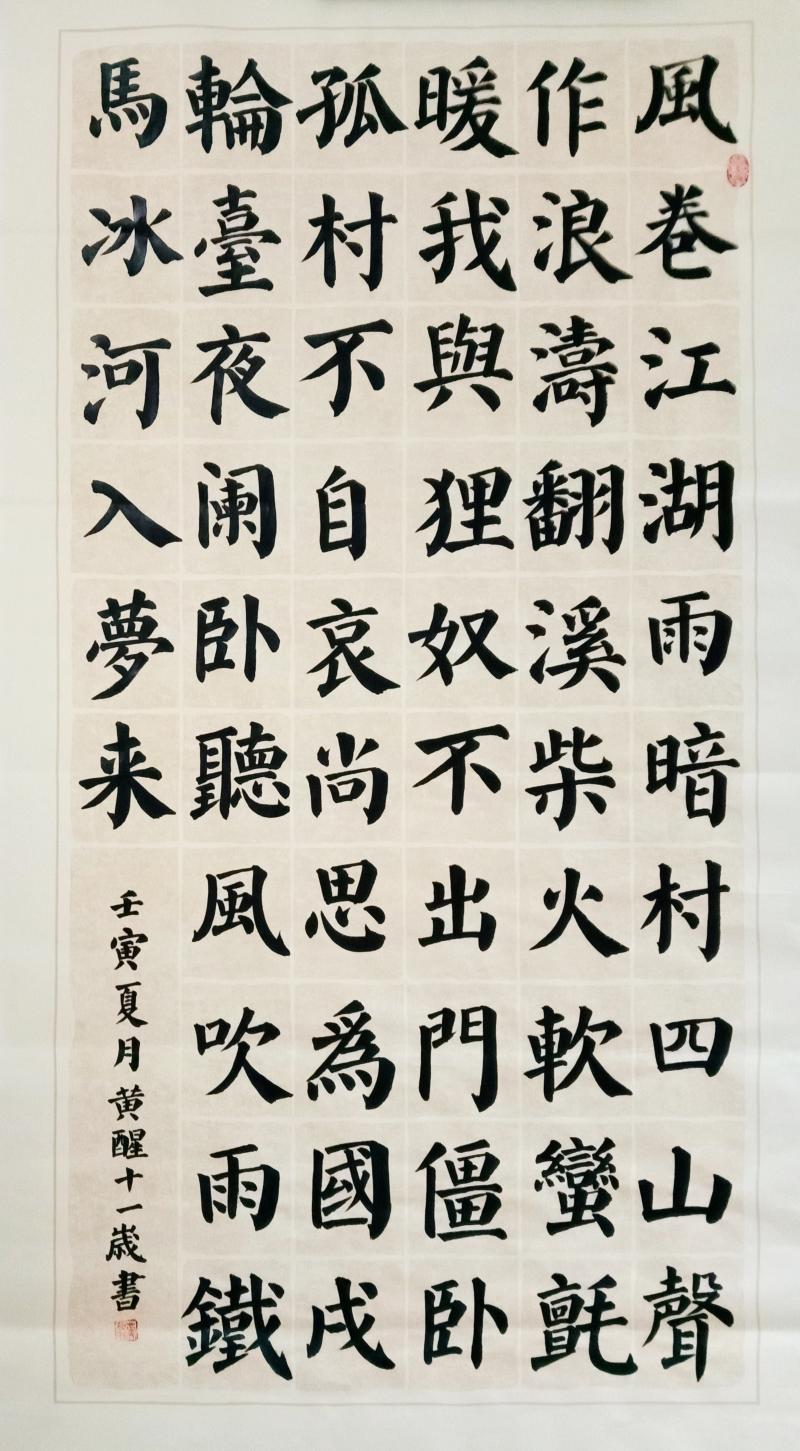 風卷江湖雨暗村四山聲
作浪濤翻溪柴火軟蠻氈
暖我與狸奴不出門僵卧
孤村不自哀尚思爲國戍
輪臺夜阑卧聽風吹雨鐵
馬冰河入夢来
壬寅夏月黄醒十一歲書